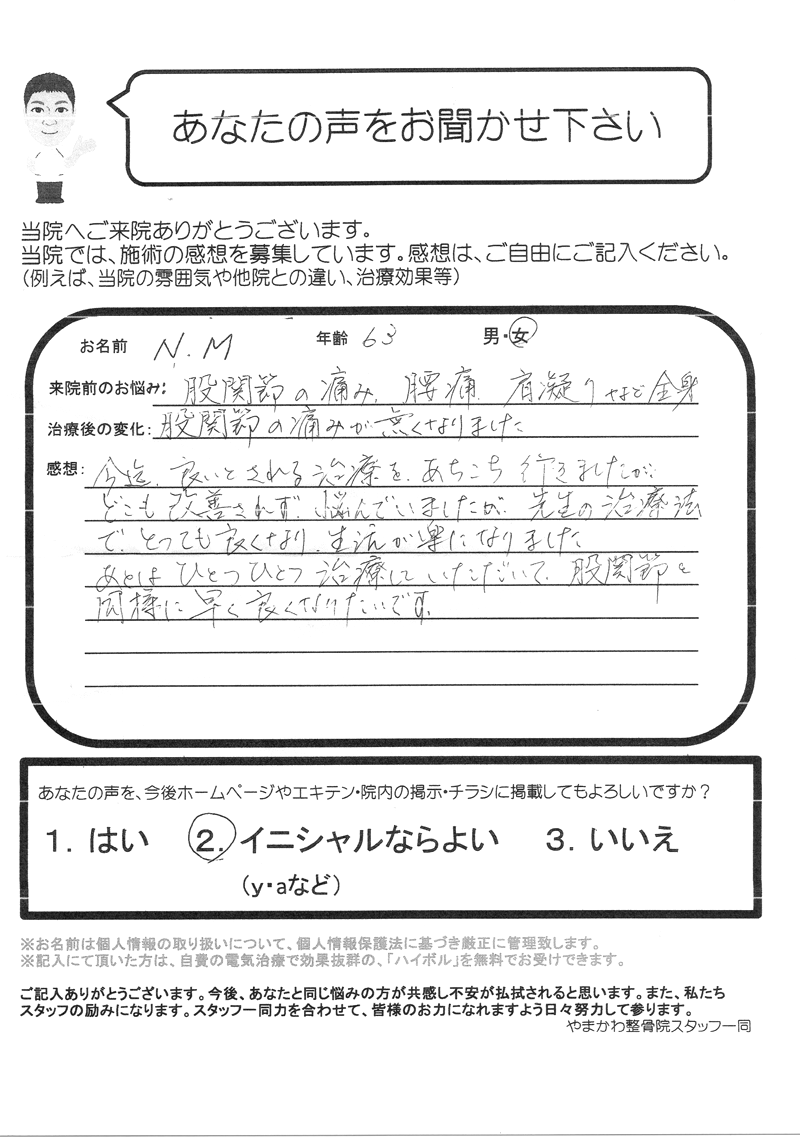 あなたの声をお聞かせ下さい
当院へご来院ありがとうございます。
当院では、施術の感想を募集しています。感想は、ご自由にご記入ください。
（例えば、当院の雰囲気や他院との違い、治療効果等）
お名前 N.M 年齢 63 男・女
来院前のお悩み: 股関節の痛み、腰痛、肩凝りなど全身
治療後の変化: 股関節の痛みが無くなりました
感想: 今迄、良いとされる治療を、あちこち行きましたが、
どこも改善されず、悩んでいましたが、先生の治療法
で、とっても良くなり、生活が楽になりました
あとはひとつひとつ治療していただいて、股関節と
同様に早く良くなりたいです。
あなたの声を、今後ホームページやエキテン・院内の掲示・チラシに掲載してもよろしいですか？
1. はい 2. イニシャルならよい 3. いいえ
（y・aなど）
※お名前は個人情報の取り扱いについて、個人情報保護法に基づき厳正に管理致します。
※記入にて頂いた方は、自費の電気治療で効果抜群の、「ハイボル」を無料でお受けできます。
ご記入ありがとうございます。今後、あなたと同じ悩みの方が共感し不安が払拭されると思います。また、私たち
スタッフの励みになります。スタッフ一同力を合わせて、皆様のお力になれますよう日々努力して参ります。
やまかわ整骨院スタッフ一同